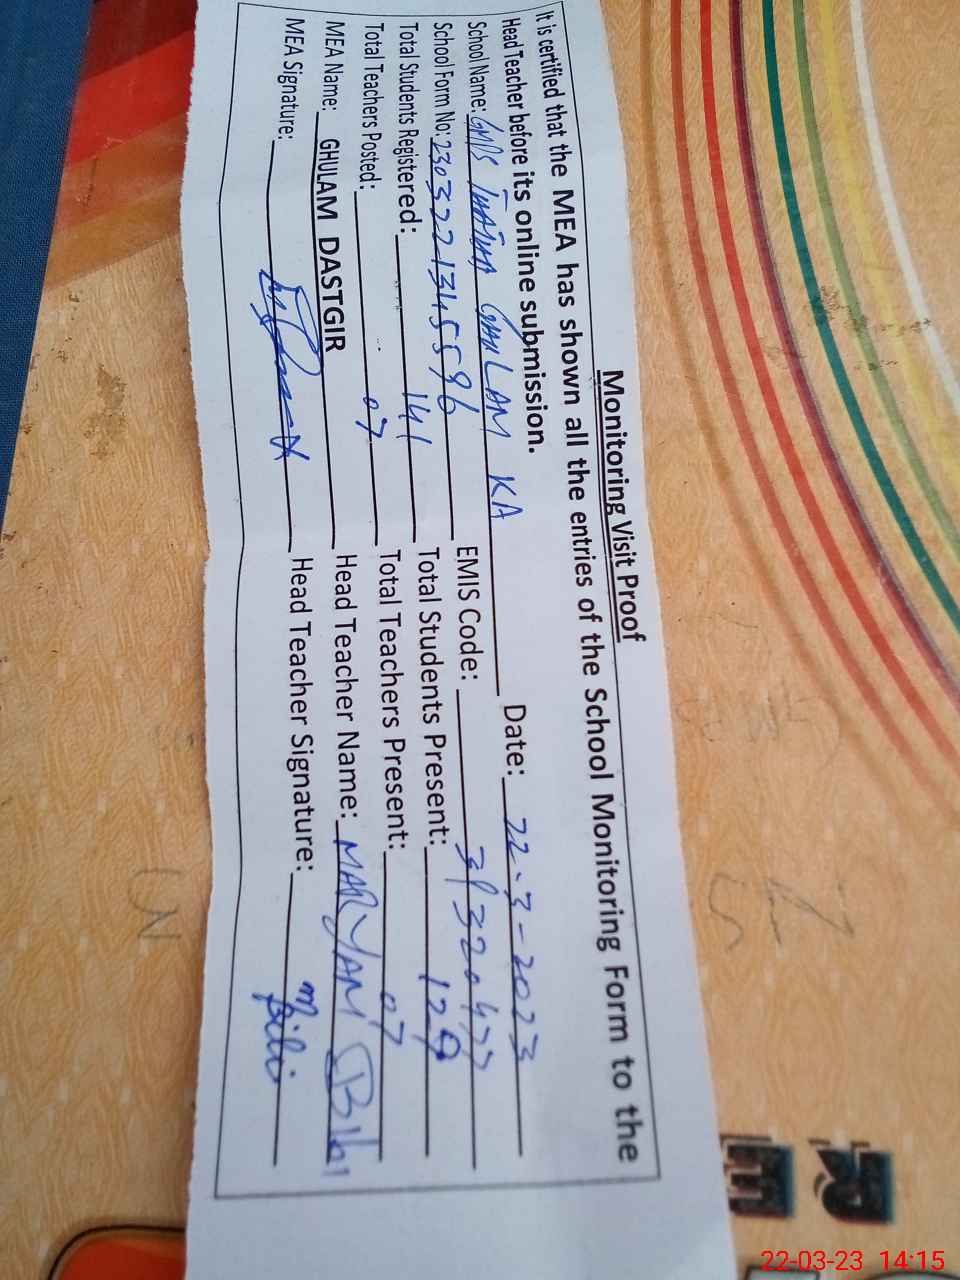 Monitoring Visit Proof
It is certified that the MEA has shown all the entries of the School Monitoring Form to the
Head Teacher before its online submission.
School Name: GMPS GHULAM KA Date: 22-3-2023
School Form No: EMIS Code: 31320477
Total Students Registered: 141 Total Students Present: 129
Total Teachers Posted: 07 Total Teachers Present: 07
MEA Name: GHULAM DASTGIR Head Teacher Name: MARYAM Bibi
MEA Signature: Head Teacher Signature: M Bibi
RE
22-03-23 14:15